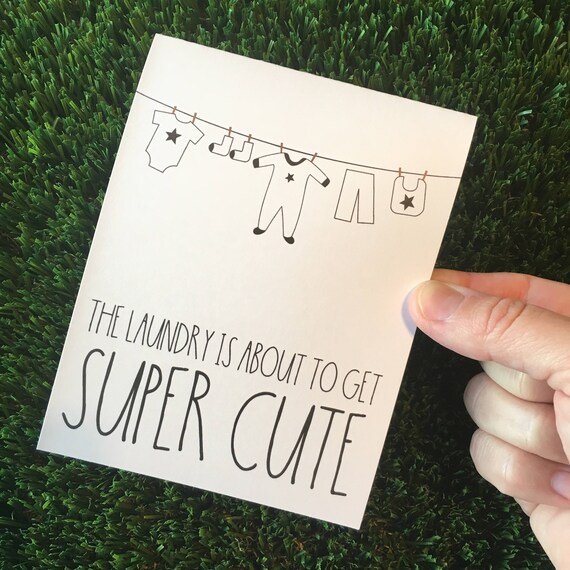 THE LAUNDRY IS ABOUT TO GET
SUPER CUTE